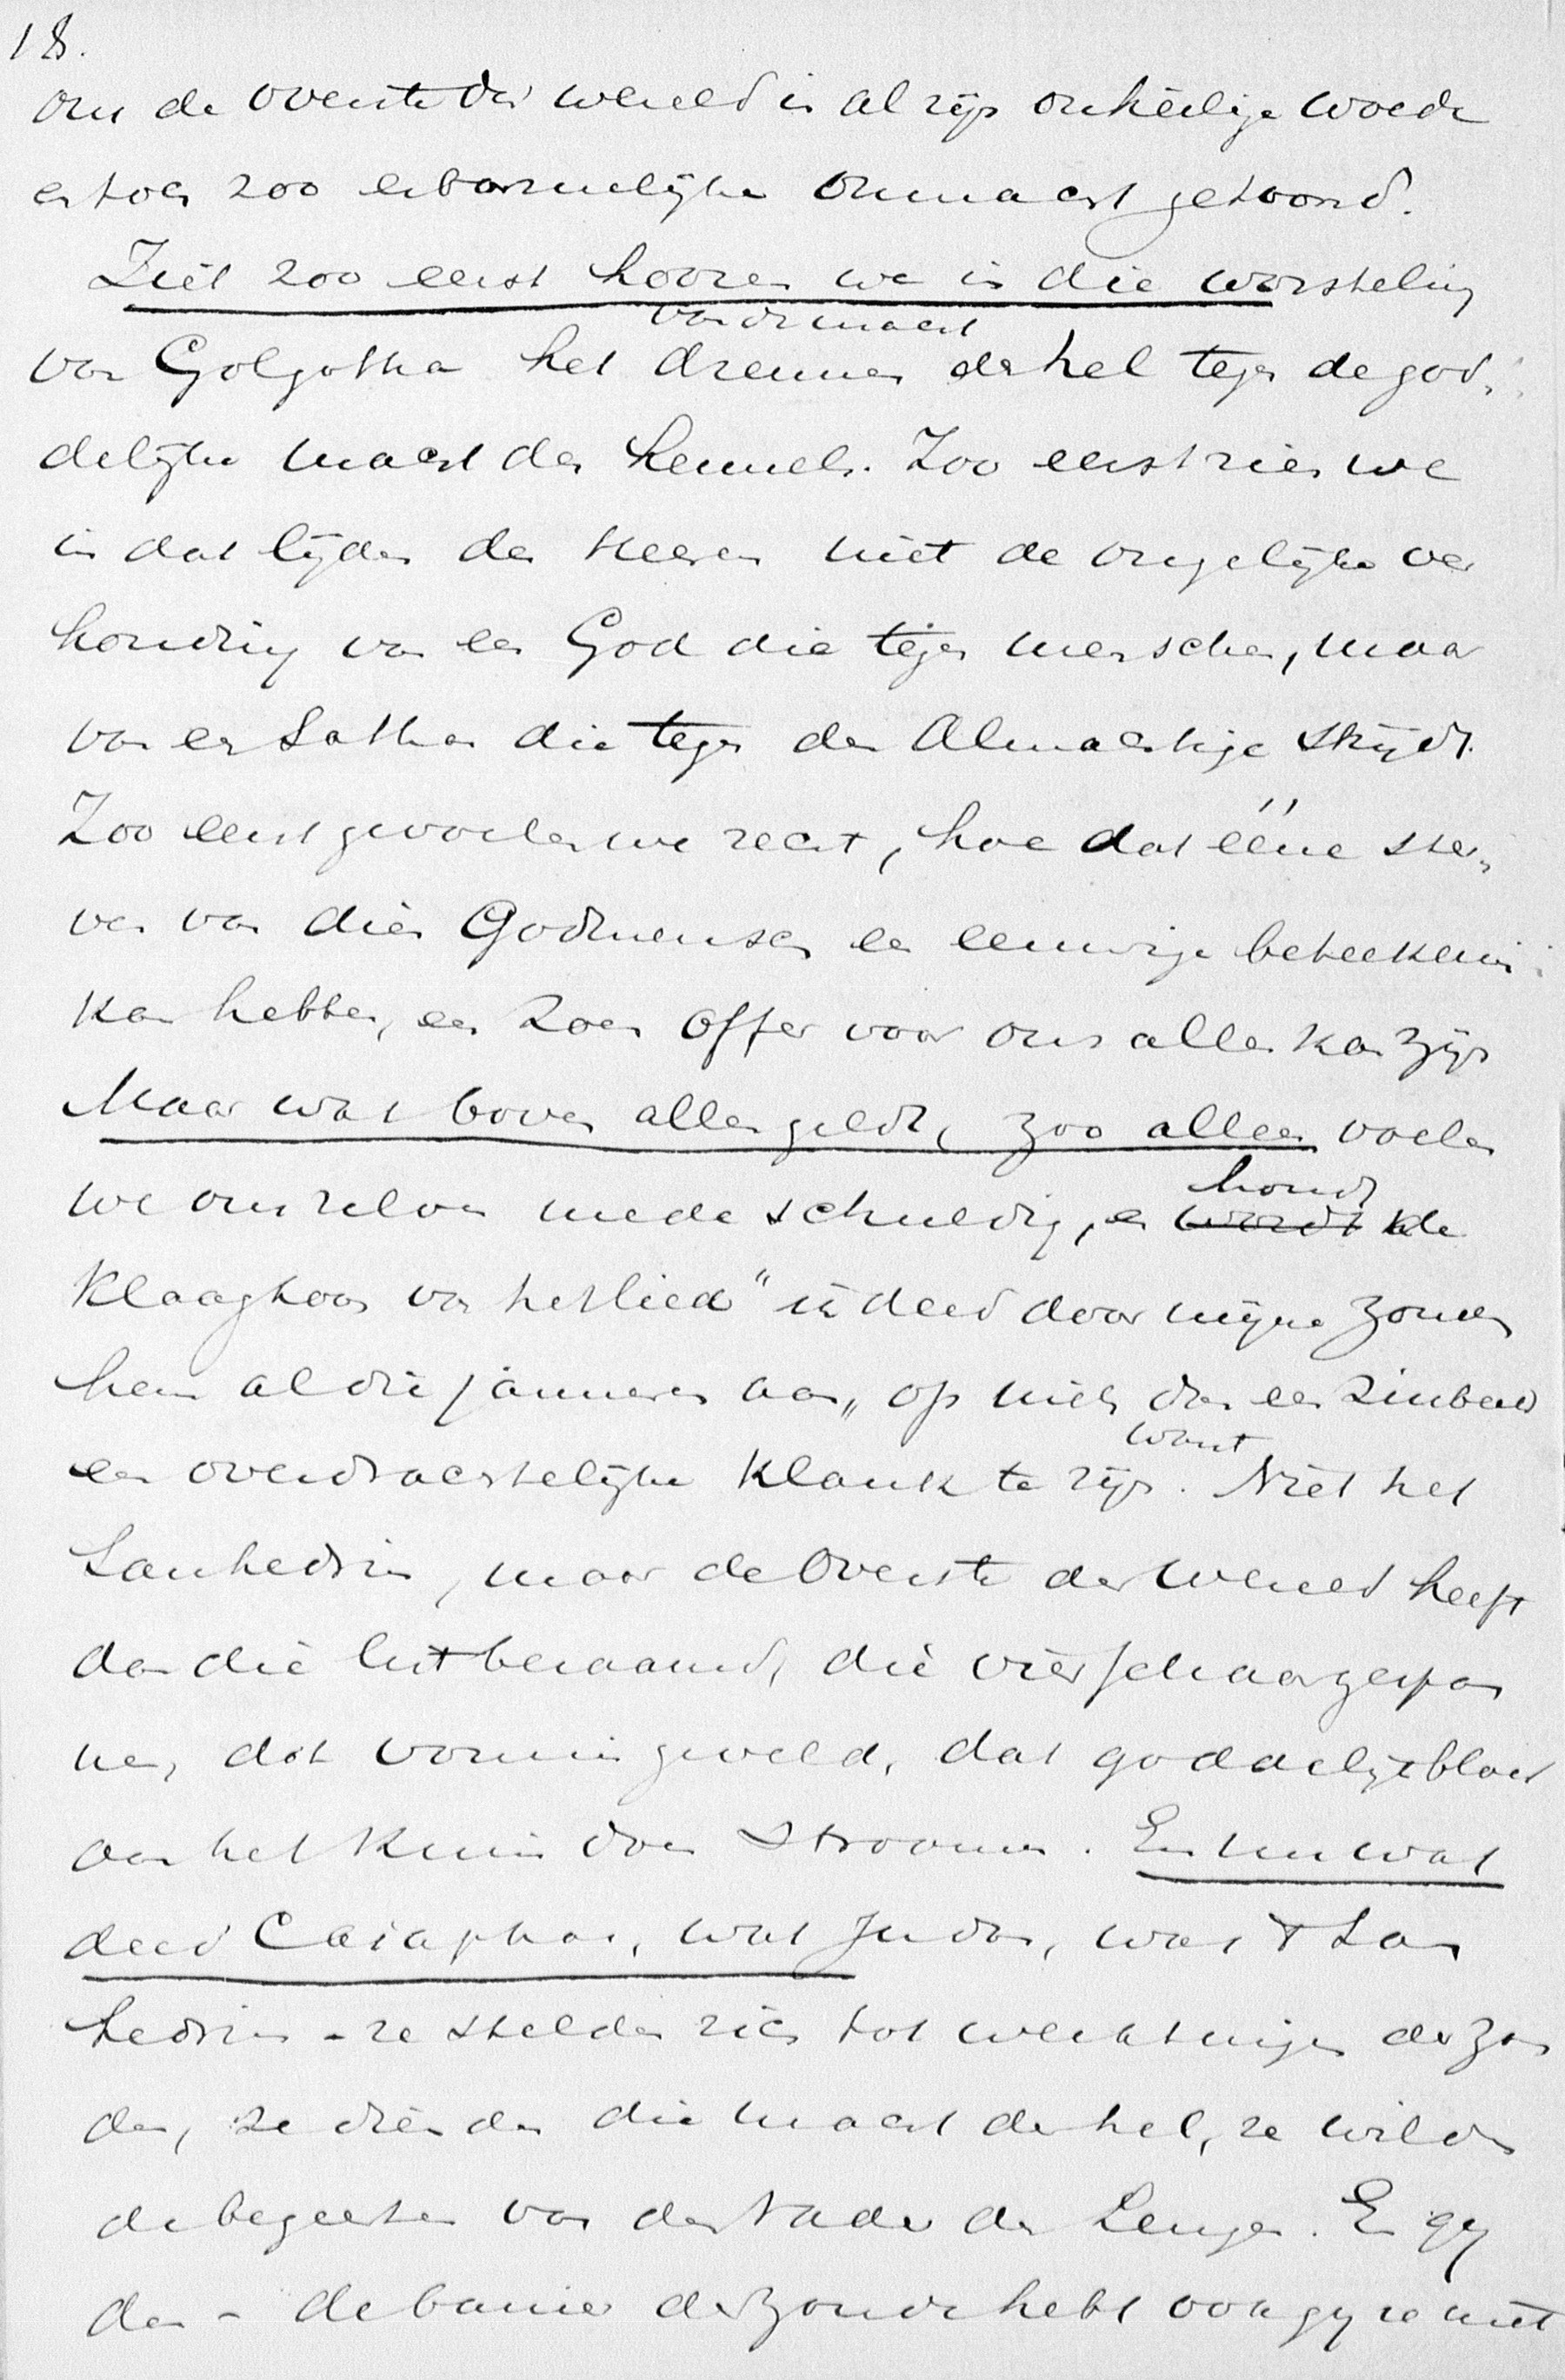 18.
ons de overste der wereld in al zijn onheilige woede
en toch zoo erbarmelijke onmacht getoond.
Ziet zoo eerst hooren we in die worsteling
van de macht
van Golgotha het dreunen der hel tegen de god-
delijke macht des hemels. Zoo eerst zien we
in dat lijden des Heeren niet de ongelijke ver
houding van een God die tegen menschen, maar
van een Sathan die tegen den Almachtige strijdt.
Zoo eerst gevoelen we recht, hoe dat ééne ster-
ven van dien Godmensch een eeuwige beteekenis
kan hebben, een zoen offer voor ons allen kan zijn
Maar wat boven alles geldt, zoo alleen voelen
we ons zelven mede schuldig, en
houdt
wordt de
Klaagtoon van het lied "ik deed door mijne zonden
hem al die jammeren aan" op niets dan een zinbeeld
want
een overdrachtelijke klank te zijn. Niet het
Sanhedrin, maar de Overste der wereld heeft
dan die list beraamd, die vierschaar gespan
nen, dat vonnis geveld, dat goddelijk bloed
aan het kruis doen stroomen. En nu wat
deed Caiaphas, wat Judas, wat 't San
hedrin - ze stelden zich tot werktuigen der zon
den, ze dienden die macht der hel, ze wilden
de begeerten van den Vader der Leugen. En gij
dan - de banier der zonde hebt ook gij ze niet